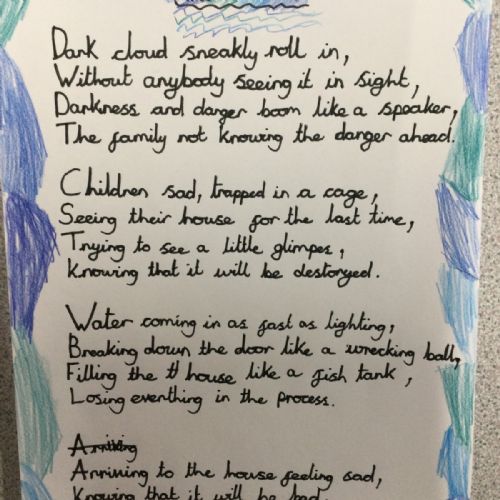 Dark cloud sneakly roll in,
Without anybody seeing it in sight,
Darkness and danger boom like a speaker,
The family not knowing the danger ahead.
Children sad, trapped in a cage,
Seeing their house for the last time,
Trying to see a little glimpes,
Knowing that it will be destoryed.
Water coming in as fast as lighting,
Breaking down the door like a wrecking ball,
Filling the house like a fish tank,
Losing everthing in the process.
Arriving to the house feeling sad,
Knowing that it will be bad,